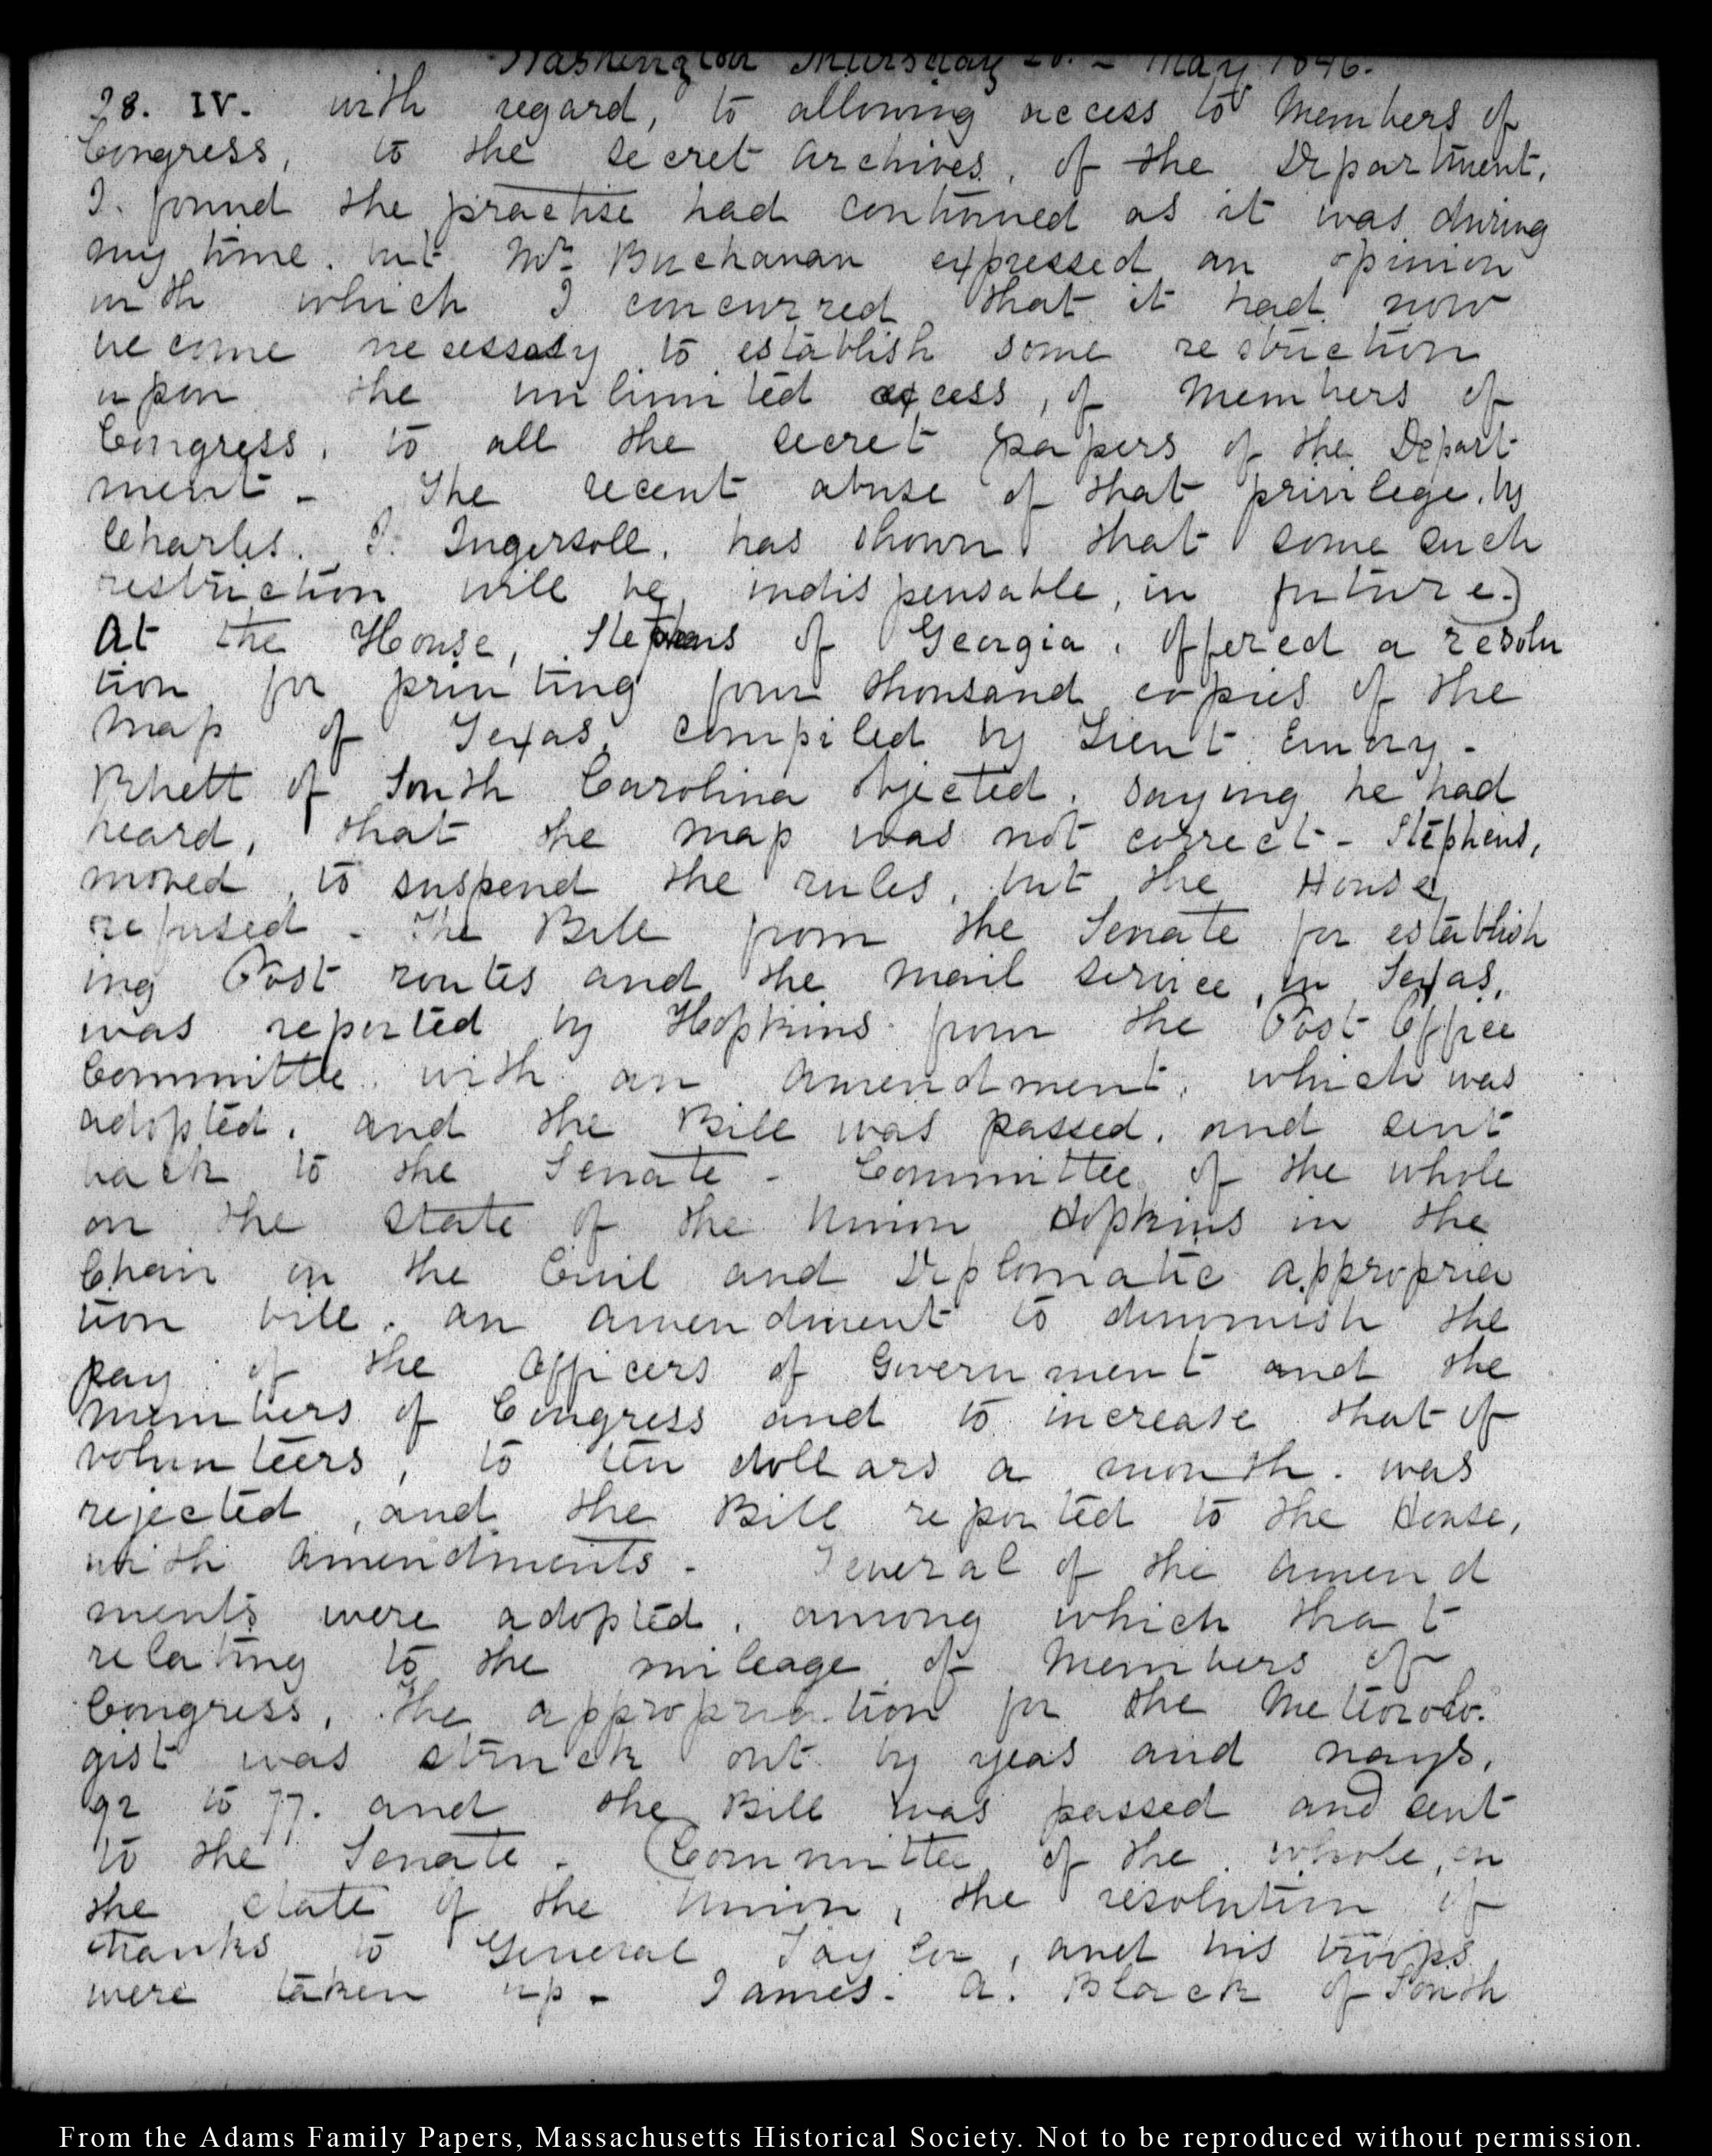 Washington Thursday 28. - May 1846.
28. IV. with regard, to allowing access to Members of
Congress, to the secret archives, of the Department.
I. found the practise had continued as it was during
my time. but Mr. Buchanan expressed an opinion
with which I concurred that it had now
become necessary to establish some restriction
upon the unlimited access, of Members of
Congress, to all the secret papers of the Depart
ment - The recent abuse of that privilege, by
Charles. J. Ingersoll. has shown that some such
restriction will be, indispensable, in future.)
At the House, Stephens of Georgia, offered a resolu
tion for printing four thousand copies of the
map of Texas, compiled by Lieut Emory -
Rhett of South Carolina objected, saying he had
heard, that the map was not correct - Stephens,
moved, to suspend the rules, but the House
refused - The Bill from the Senate for establish
ing Post routes and the mail service, in Texas,
was reported by Hopkins from the Post Office
Committee with an amendment, which was
adopted, and the Bill was passed, and sent
back to the Senate - Committee of the whole
on the state of the Union Hopkins in the
Chair on the Civil and Diplomatic appropria
tion bill. an amendment to diminish the
pay of the Officers of Government and the
members of Congress and to increase that of
volunteers, to ten dollars a month. was
rejected, and the Bill reported to the House,
with amendments - Several of the amend
ments were adopted, among which that
relating to the mileage of Members of
Congress, the appropriation for the Meteorolo.
gist was struck out by yeas and nays,
92 to 77. and the Bill was passed and sent
to the Senate - (Committee of the whole, on
the state of the Union, the resolution of
thanks to General Taylor, and his troops
were taken up - James. A. Black of South
From the Adams Family Papers, Massachusetts Historical Society. Not to be reproduced without permission.